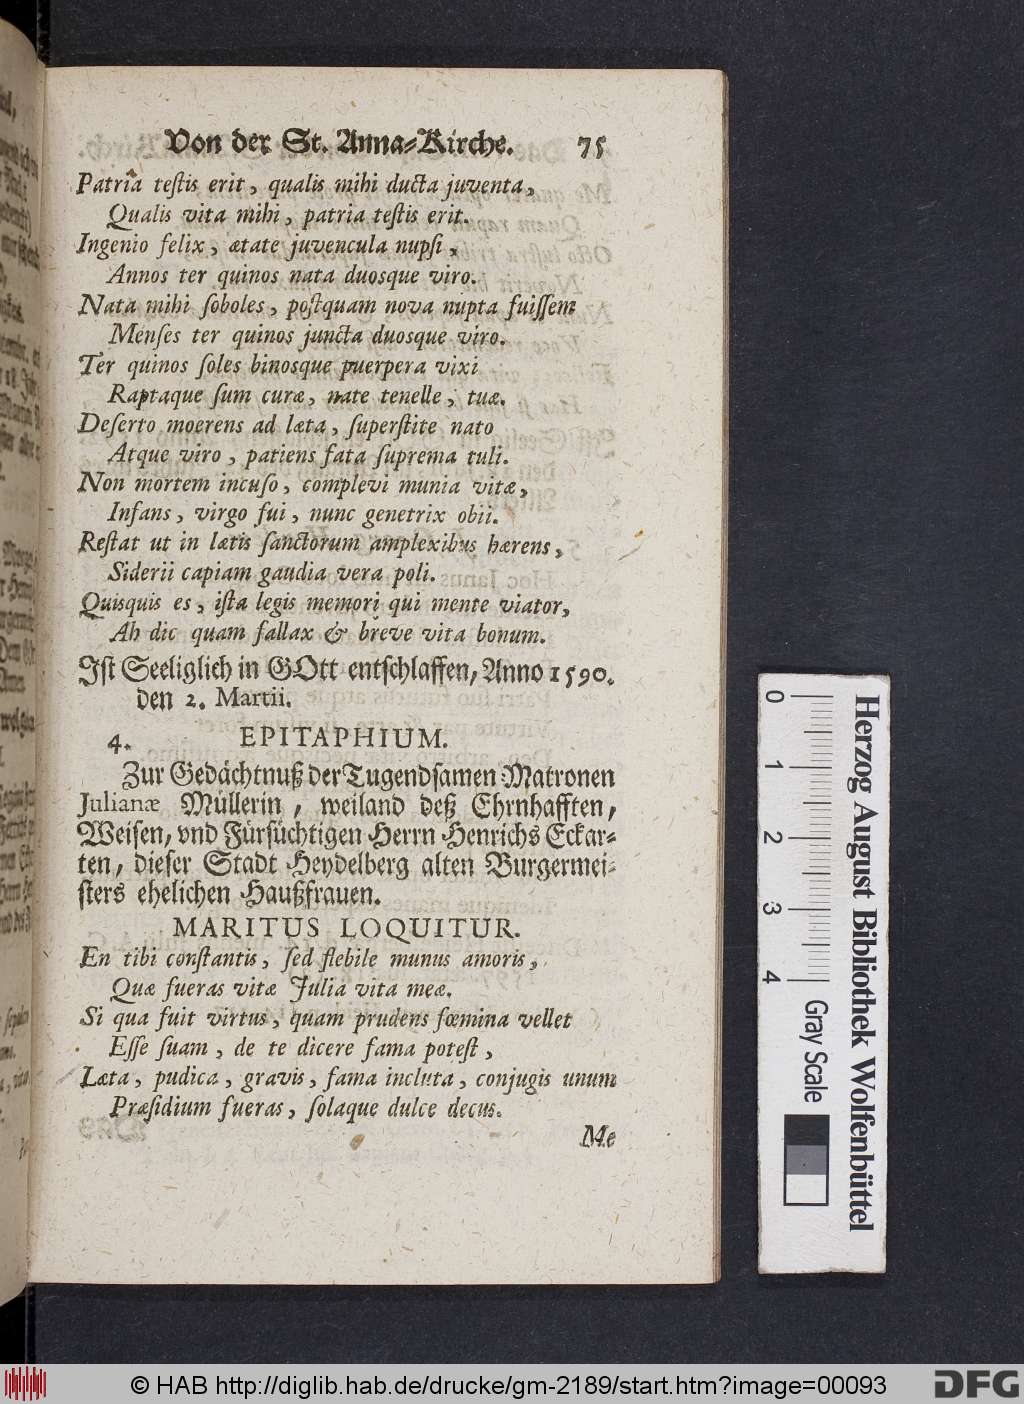 Von der St. Anna-Kirche. 75
Patria testis erit, qualis mihi ducta juventa,
Qualis vita mihi, patria testis erit.
Ingenio felix, ætate juvencula nupsi,
Annos ter quinos nata duosque viro.
Nata mihi soboles, postquam nova nupta fuissem
Menses ter quinos juncta duosque viro.
Ter quinos soles binosque puerpera vixi
Raptaque sum curæ, nate tenelle, tuæ.
Deserto moerens ad læta, superstite nato
Atque viro, patiens fata suprema tuli.
Non mortem incuso, complevi munia vitæ,
Infans, virgo fui, nunc genetrix obii.
Restat ut in lætis sanctorum amplexibus hærens,
Siderii capiam gaudia vera poli.
Quisquis es, ista legis memori qui mente viator,
Ah dic quam fallax & breve vita bonum.
Ist Seeliglich in GOtt entschlaffen, Anno 1590.
den 2. Martii.
4. EPITAPHIUM.
Zur Gedächtnuß der Tugendsamen Matronen
Julianæ Müllerin, weiland deß Ehrnhafften,
Weisen, vnd Fürsüchtigen Herrn Henrichs Eckar-
ten, dieser Stadt Heydelberg alten Burgermei-
sters ehelichen Haußfrauen.
MARITUS LOQUITUR.
En tibi constantis, sed flebile munus amoris,
Quæ fueras vitæ Julia vita meæ.
Si qua fuit virtus, quam prudens fœmina vellet
Esse suam, de te dicere fama potest,
Læta, pudica, gravis, fama incluta, conjugis unum
Præsidium fueras, solaque dulce decus.
Me
0 1 2 3 4
Gray Scale
Herzog August Bibliothek Wolfenbüttel
© HAB http://diglib.hab.de/drucke/gm-2189/start.htm?image=00093
DFG